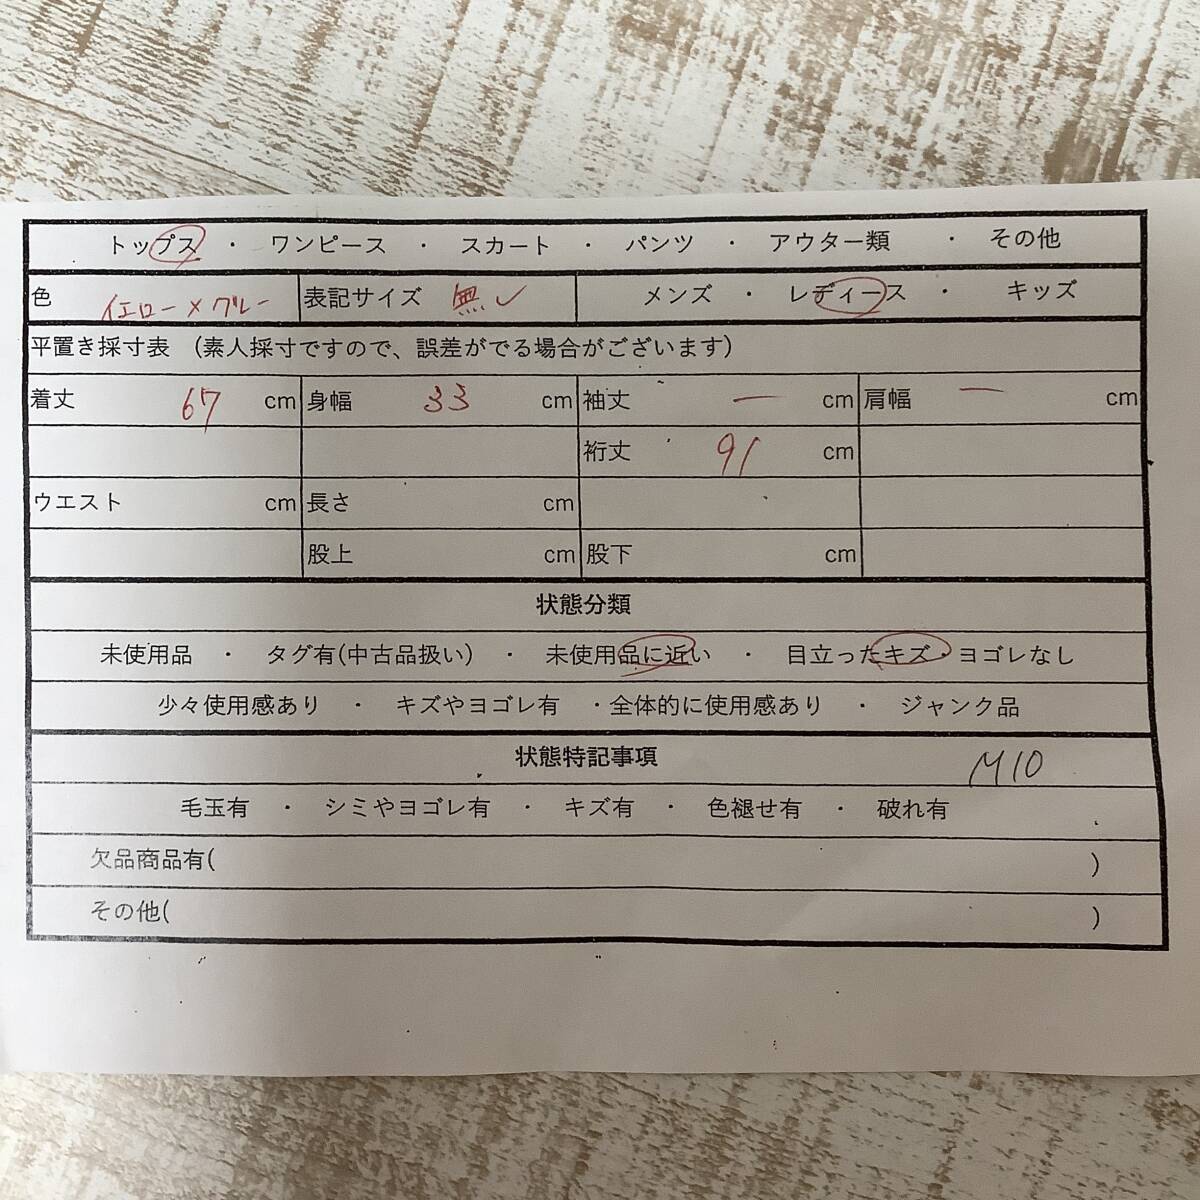 トップス ・ ワンピース ・ スカート ・ パンツ ・ アウター類 ・ その他
色 イエロー×グレー 表記サイズ 無 メンズ ・ レディース ・ キッズ
平置き採寸表 (素人採寸ですので、誤差がでる場合がございます)
着丈 67 cm 身幅 33 cm 袖丈 ー cm 肩幅 ー cm
裄丈 91 cm
ウエスト cm 長さ cm
股上 cm 股下 cm
状態分類
未使用品 ・ タグ有(中古品扱い) ・ 未使用品に近い ・ 目立ったキズ・ヨゴレなし
少々使用感あり ・ キズやヨゴレ有 ・全体的に使用感あり ・ ジャンク品
状態特記事項 M10
毛玉有 ・ シミやヨゴレ有 ・ キズ有 ・ 色褪せ有 ・ 破れ有
欠品商品有( )
その他( )